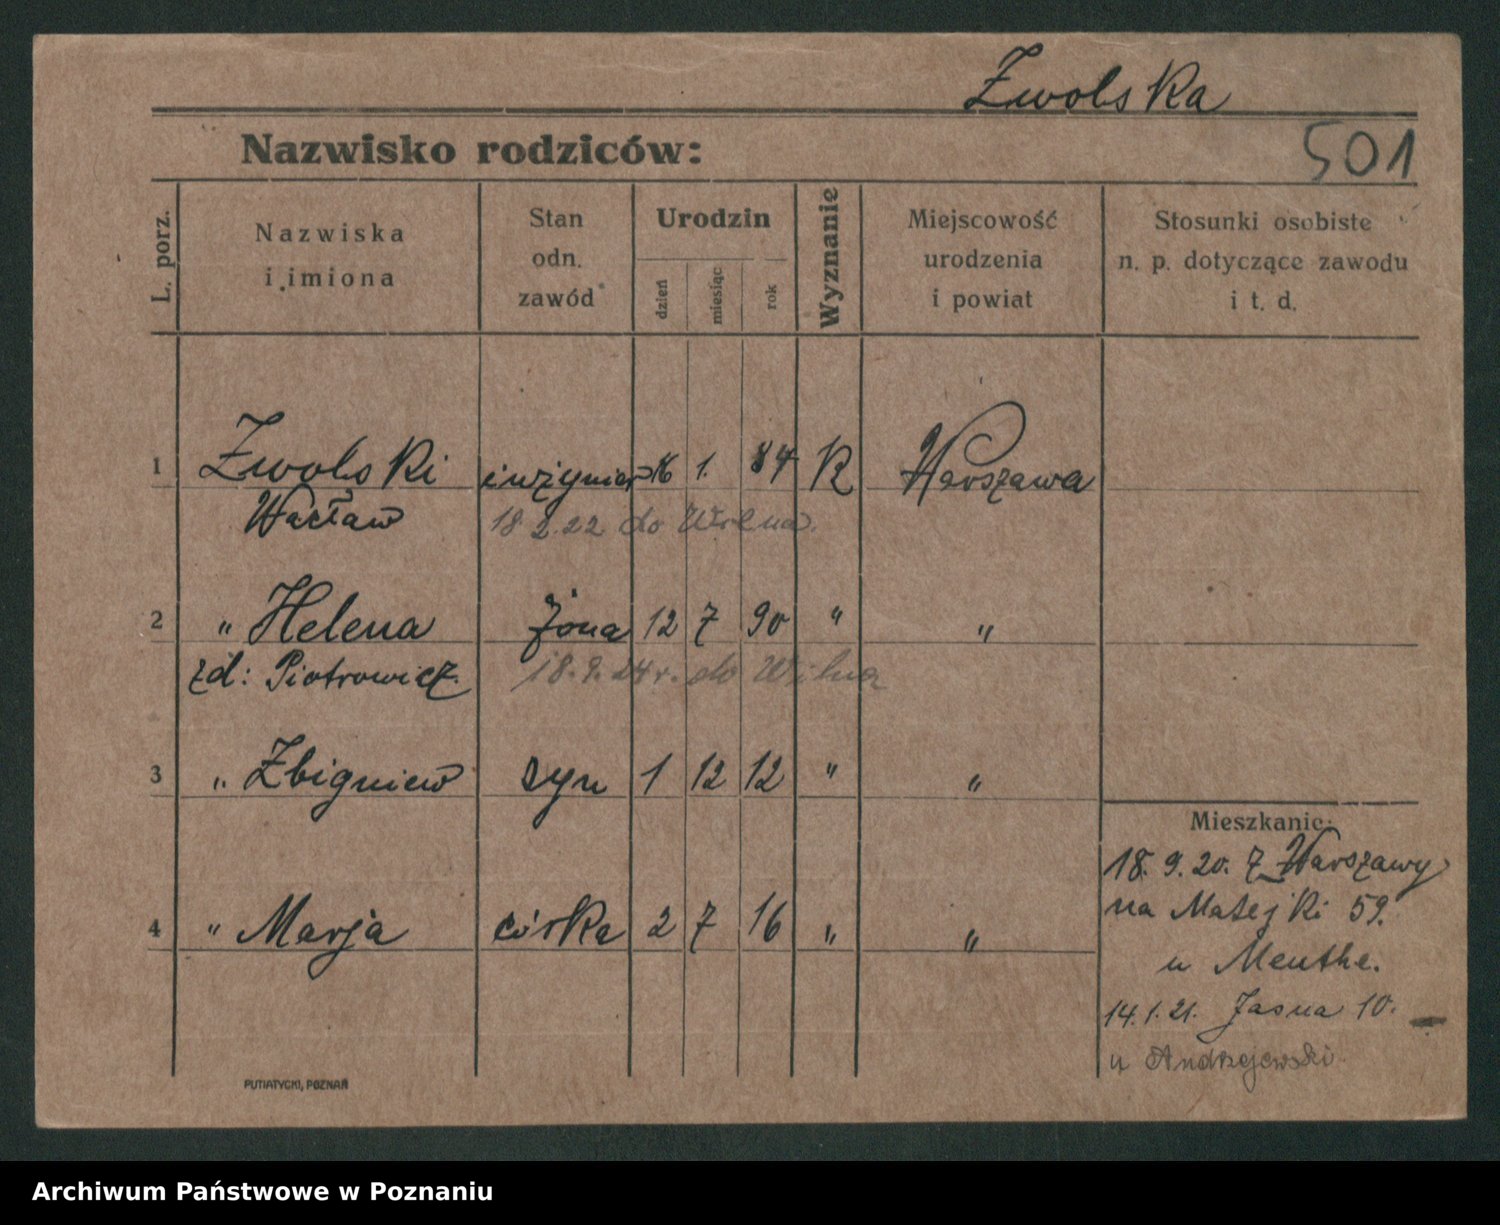 Zwolska
501
Nazwisko rodziców:
L. porz.
Nazwiska
i imiona
Stan
odn.
zawód
Urodzin
dzień
miesiąc
rok
Wyznanie
Miejscowość
urodzenia
i powiat
Stosunki osobiste
n. p. dotyczące zawodu
i t. d.
1 Zwolski inżynier 16 1. 84 R Warszawa
Wacław 18 2.22 do Wilna.
2 " Helena żona 12 7 90 " "
zd: Piotrowicz. 18.9.24 r. do Wilna
3 " Zbigniew syn 1 12 12 " "
4 " Marja córka 2 7 16 " "
Mieszkanie:
18. 9. 20. z Warszawy
na Matejki 59.
u Menthe.
14.1.21. Jasna 10.
u Andrzejewski.
PUTIATYCKI, POZNAŃ
Archiwum Państwowe w Poznaniu